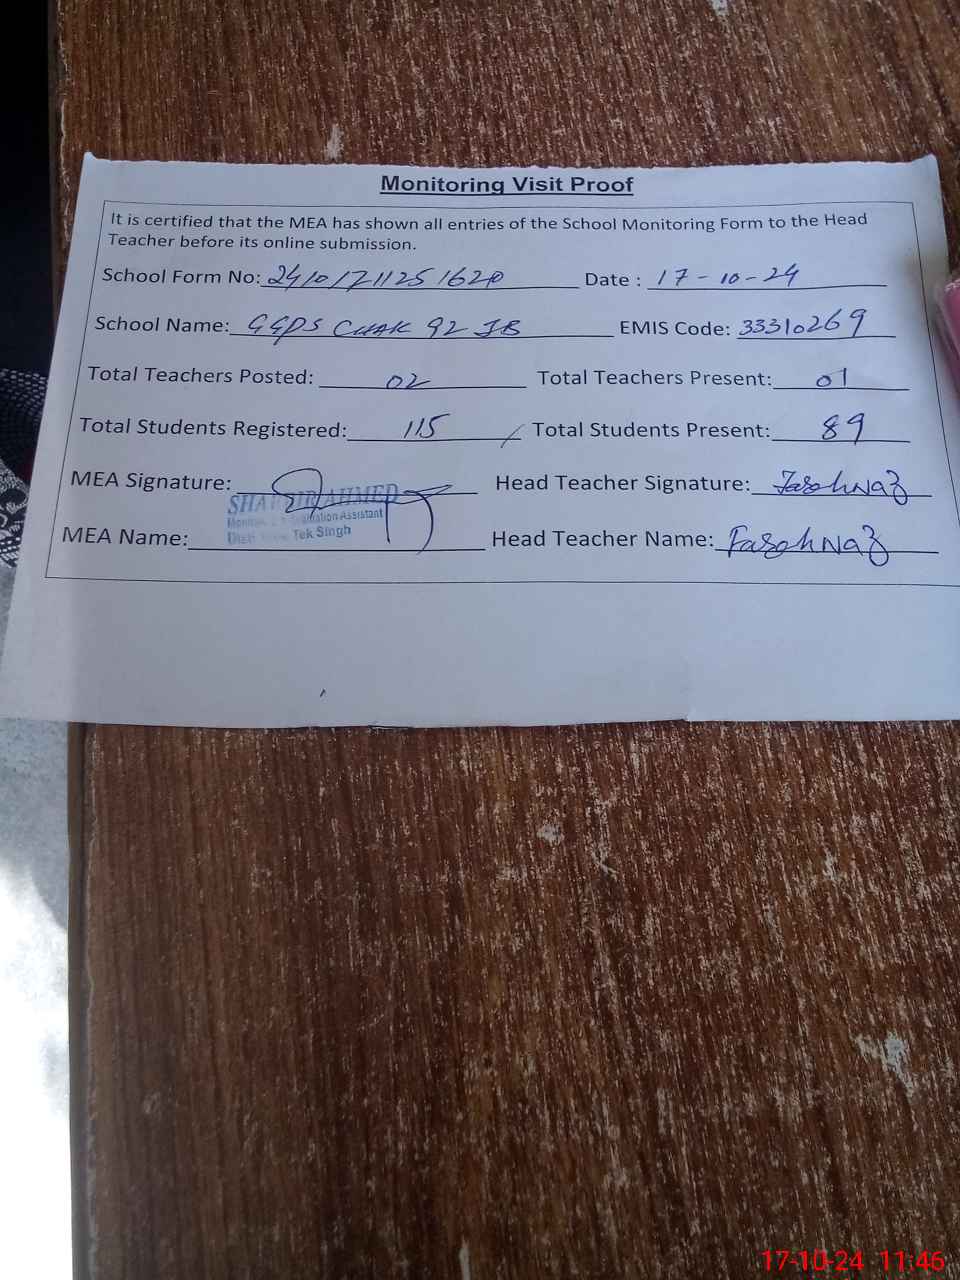 Monitoring Visit Proof
It is certified that the MEA has shown all entries of the School Monitoring Form to the Head
Teacher before its online submission.
School Form No: 24101711251620 Date : 17-10-24
School Name: GGPS CHAK 92 JB EMIS Code: 33310269
Total Teachers Posted: 02 Total Teachers Present: 01
Total Students Registered: 115 Total Students Present: 89
MEA Signature: Head Teacher Signature:
AHMED
Assistant
Tek Singh
MEA Name: Head Teacher Name:
17-10-24 11:46